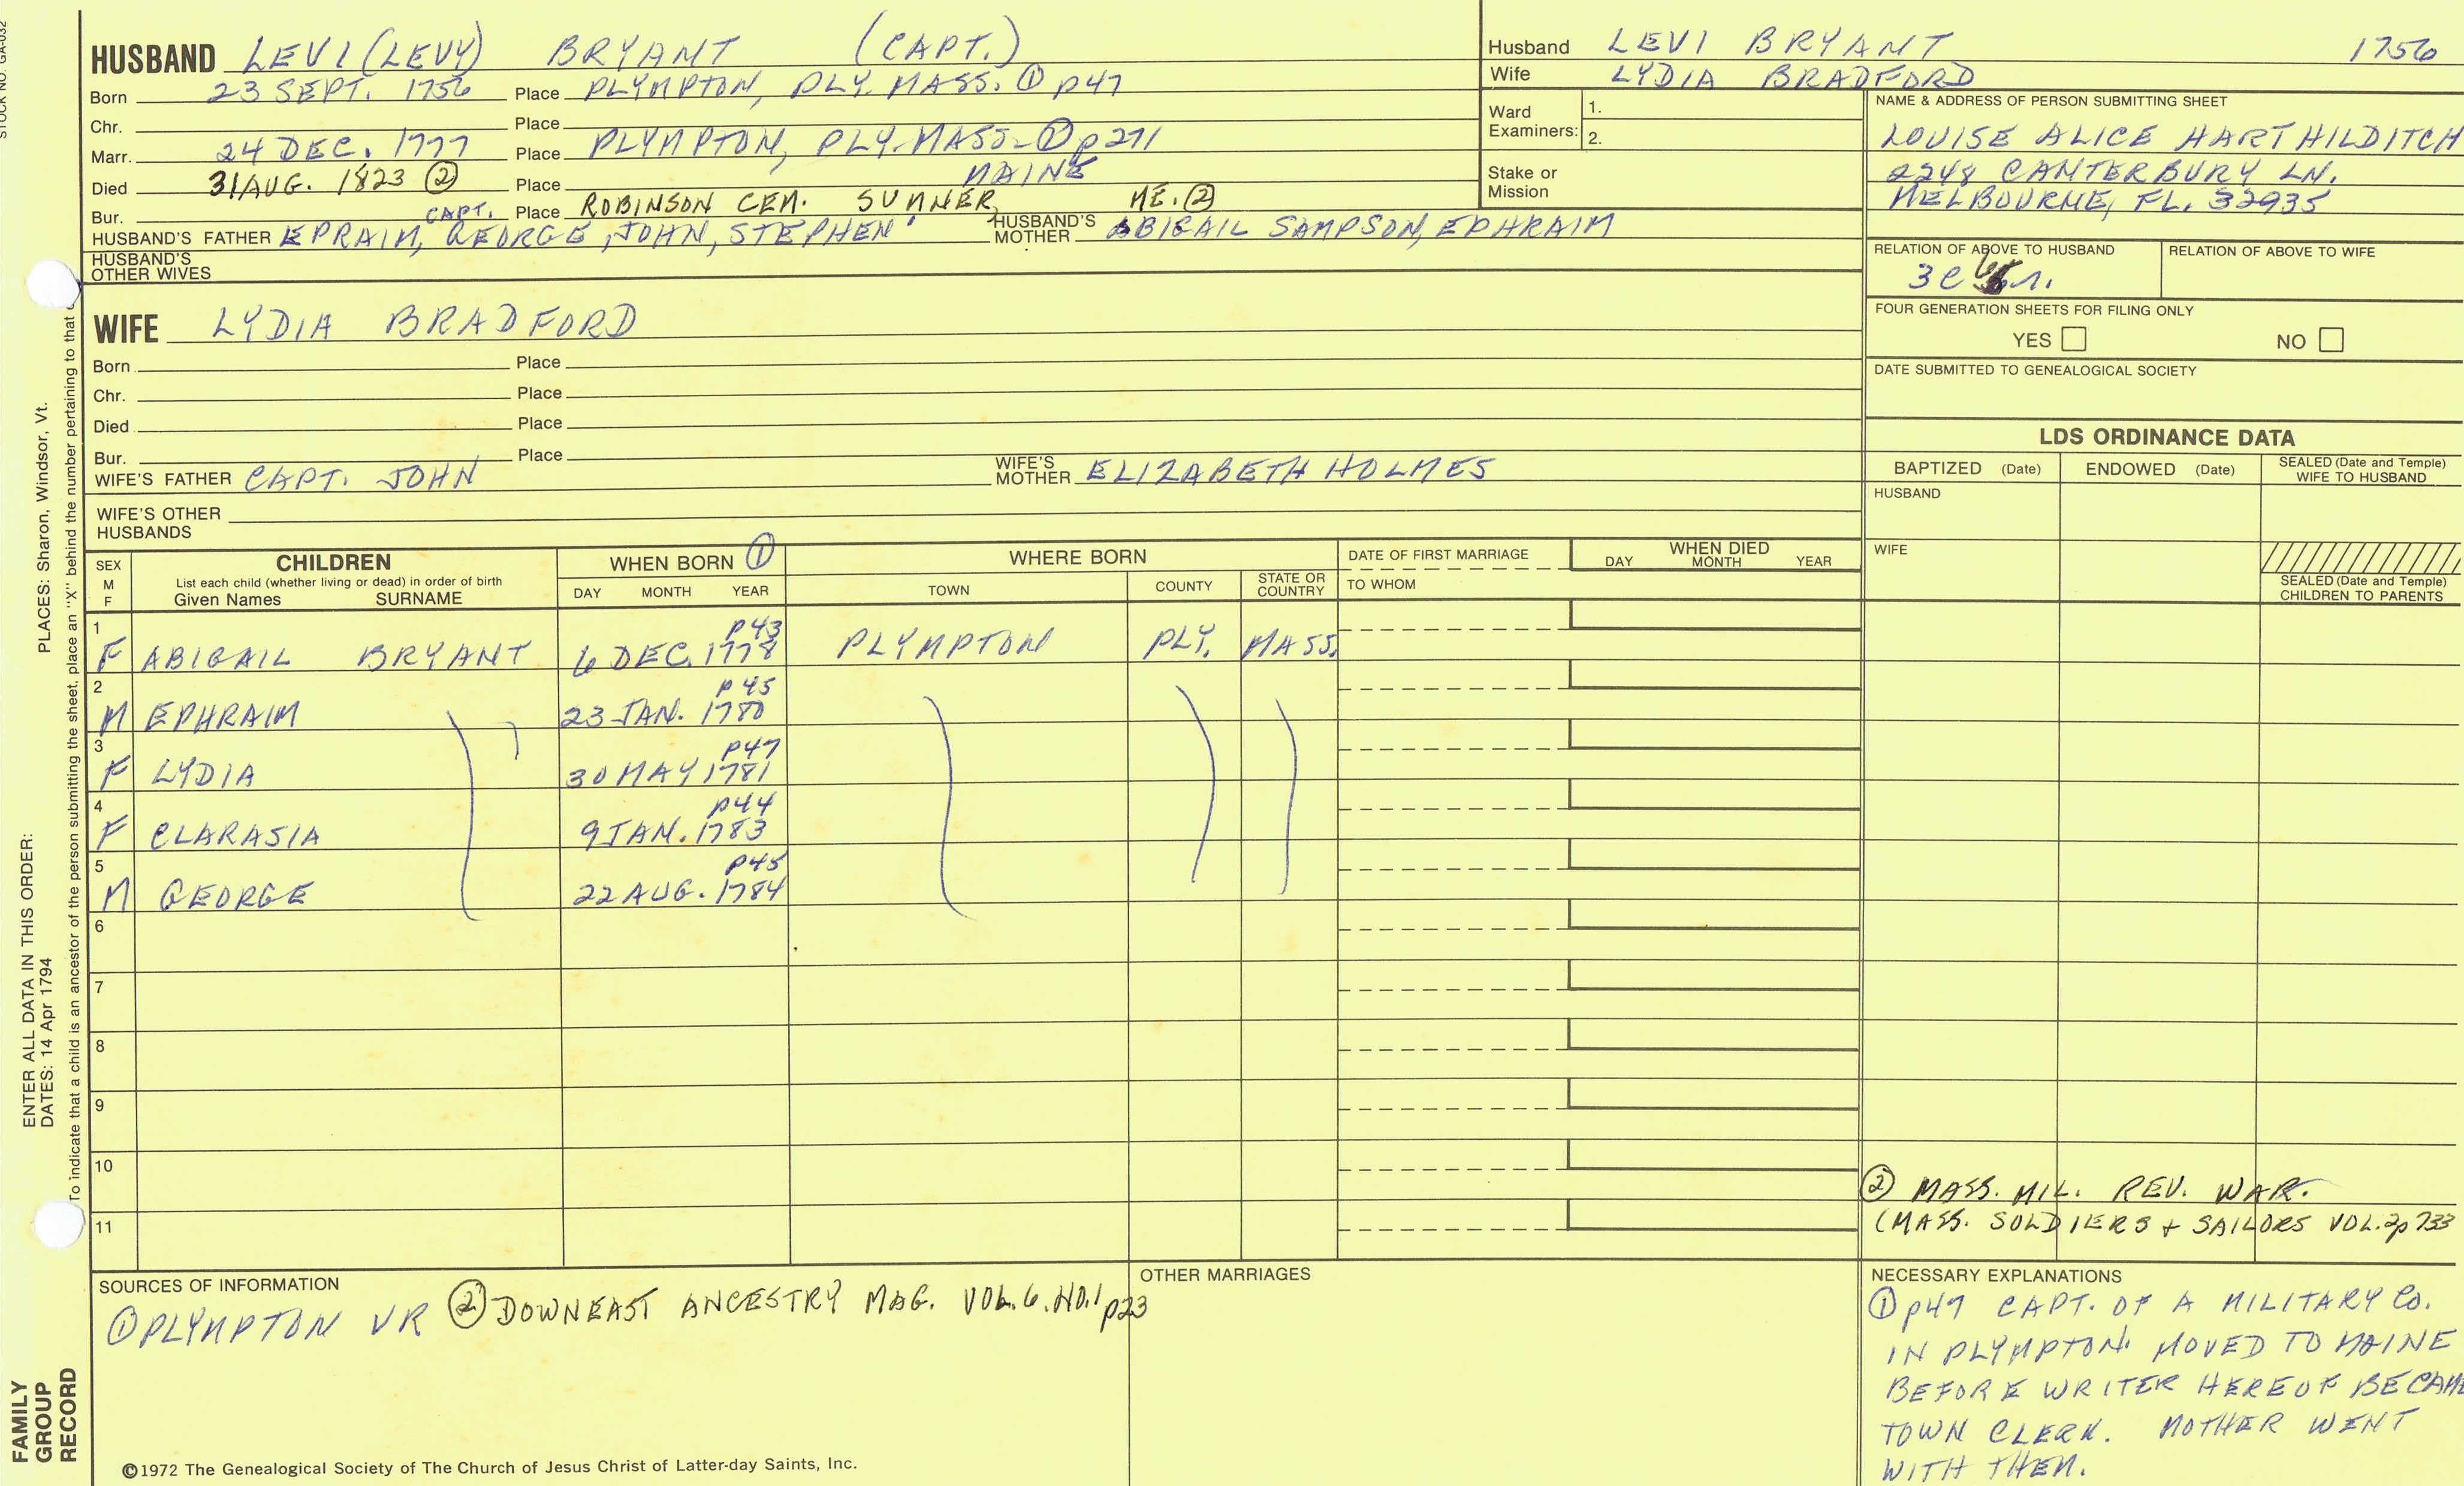 STOCK NO. GA-032
HUSBAND LEVI (LEVY) BRYANT (CAPT.)
Born 23 SEPT. 1756 Place PLYMPTON, PLY. MASS. ① p47
Chr. Place
Marr. 24 DEC. 1777 Place PLYMPTON, PLY. MASS. ① p271
Died 31 AUG. 1823 ② Place MAINE
Bur. Place ROBINSON CEM. SUMNER, ME. ②
HUSBAND'S FATHER CAPT. EPRAIM, GEORGE, JOHN, STEPHEN HUSBAND'S MOTHER ABIGAIL SAMPSON, EPHRAIM
HUSBAND'S OTHER WIVES
WIFE LYDIA BRADFORD
Born Place
Chr. Place
Died Place
Bur. Place
WIFE'S FATHER CAPT. JOHN WIFE'S MOTHER ELIZABETH HOLMES
WIFE'S OTHER HUSBANDS
Husband LEVI BRYANT 1756
Wife LYDIA BRADFORD
Ward Examiners: 1.
2.
Stake or Mission
NAME & ADDRESS OF PERSON SUBMITTING SHEET
LOUISE ALICE HART HILDITCH
2248 CANTERBURY LN.
MELBOURNE, FL. 32935
RELATION OF ABOVE TO HUSBAND RELATION OF ABOVE TO WIFE
3C
FOUR GENERATION SHEETS FOR FILING ONLY
YES NO
DATE SUBMITTED TO GENEALOGICAL SOCIETY
LDS ORDINANCE DATA
BAPTIZED (Date) ENDOWED (Date) SEALED (Date and Temple) WIFE TO HUSBAND
HUSBAND
WIFE
SEALED (Date and Temple) CHILDREN TO PARENTS
SEX M F CHILDREN WHEN BORN ① WHERE BORN DATE OF FIRST MARRIAGE WHEN DIED
List each child (whether living or dead) in order of birth
Given Names SURNAME DAY MONTH YEAR TOWN COUNTY STATE OR COUNTRY TO WHOM DAY MONTH YEAR
1 p43
F ABIGAIL BRYANT 6 DEC. 1778 PLYMPTON PLY. MASS.
2 p45
M EPHRAIM 23 JAN. 1780
3 p47
F LYDIA 30 MAY 1781
4 p44
F CLARASIA 9 JAN. 1783
5 p45
M GEORGE 22 AUG. 1784
6
7
8
9
10
11
② MASS. MIL. REV. WAR.
(MASS. SOLDIERS + SAILORS VOL. 2 p 733
SOURCES OF INFORMATION
① PLYMPTON VR ② DOWNEAST ANCESTRY MAG. VOL. 6. NO. 1 p23
OTHER MARRIAGES
NECESSARY EXPLANATIONS
① p47 CAPT. OF A MILITARY CO.
IN PLYMPTON. MOVED TO MAINE
BEFORE WRITER HEREOF BECAME
TOWN CLERK. MOTHER WENT
WITH THEM.
©1972 The Genealogical Society of The Church of Jesus Christ of Latter-day Saints, Inc.
FAMILY GROUP RECORD
ENTER ALL DATA IN THIS ORDER:
DATES: 14 Apr 1794
PLACES: Sharon, Windsor, Vt.
To indicate that a child is an ancestor of the person submitting the sheet, place an "X" behind the number pertaining to that